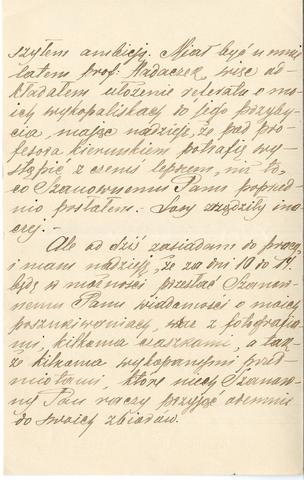 szyłem ambicję. Miał być u mnie
latem prof. Hadaczek, więc od-
kładałem ułożenie referatu o mo-
ich wykopaliskach do jego przyby-
cia, mając nadzieję, że pod pro-
fesora kierunkiem potrafię wy-
stąpić z czemś lepszem, niż to,
co Szanownemu Panu poprzed-
nio posłałem. - Losy zrządziły ina-
czej. -
Ale od dziś zasiadam do pracy
i mam nadzieję, że za dni 10 do 14
będę w możności przesłać Szanow-
nemu Panu wiadomości o moich
poszukiwaniach, wraz z fotografia-
mi, kilkoma czaszkami, a tak-
że kilkoma wykopanymi przed-
miotami, które niech Szanow-
ny Pan raczy przyjąć odemnie
do swoich zbiorów.